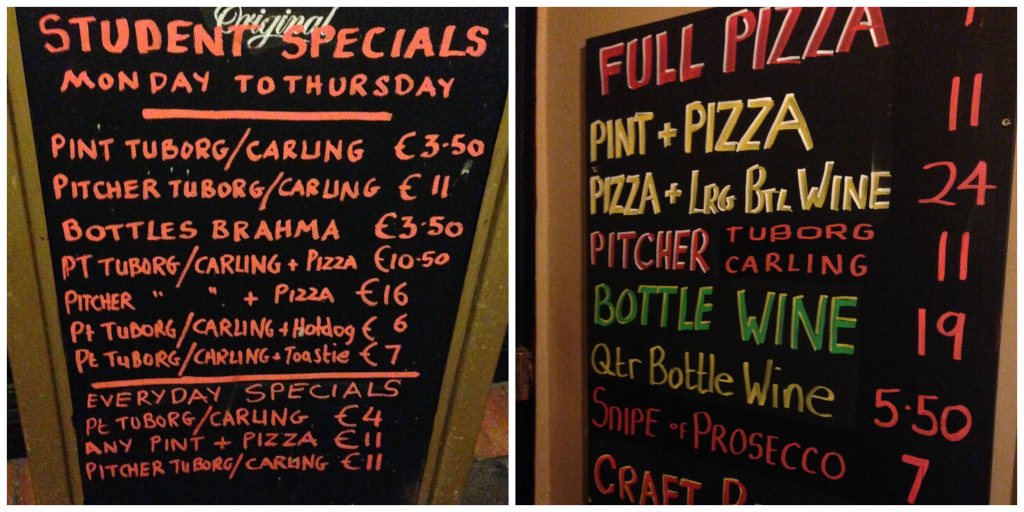 Original
STUDENT SPECIALS
MONDAY TO THURSDAY
PINT TUBORG/CARLING €3.50
PITCHER TUBORG/CARLING € 11
BOTTLES BRAHMA €3.50
PT TUBORG/CARLING + PIZZA €10.50
PITCHER " " + PIZZA €16
Pt TUBORG/CARLING + Hotdog € 6
Pt TUBORG/CARLING + Toastie € 7
EVERYDAY SPECIALS
Pt TUBORG/CARLING €4
ANY PINT + PIZZA €11
PITCHER TUBORG/CARLING €11
FULL PIZZA
PINT + PIZZA 11
PIZZA + LRG BTL WINE 24
PITCHER TUBORG CARLING 11
BOTTLE WINE 19
Qtr Bottle Wine 5.50
SNIPE of PROSECCO 7
CRAFT